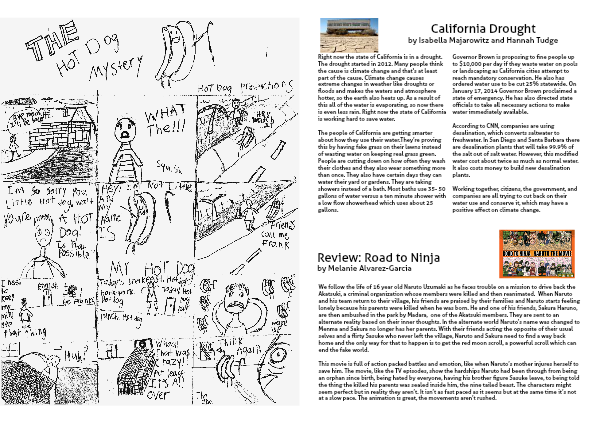 THE
HOT DOG
MYSTERY
HOT DOG
WHAT
The!!!
I'm so sorry you
Little hot dog wait
HOT
DOG!
Is that
Possible
My
Name
IS
MY HOT DOG
Friends
call me
Frank
Huh!
Whoa!
That was
crazy!
It's All
over
California Drought
by Isabella Majarowitz and Hannah Tudge
Right now the state of California is in a drought.
The drought started in 2012. Many people think
the cause is climate change and that's at least
part of the cause. Climate change causes
extreme changes in weather like droughts or
floods and makes the waters and atmosphere
hotter, so the earth also heats up. As a result of
this all of the water is evaporating, so now there
is even less rain. Right now the state of California
is working hard to save water.
The people of California are getting smarter
about how they use their water.They're proving
this by having fake grass on their lawns instead
of wasting water on keeping real grass green.
People are cutting down on how often they wash
their clothes and they also wear something more
than once. They also have certain days they can
water their yard or gardens. They are taking
showers instead of a bath. Most baths use 35-50
gallons of water versus a ten minute shower with
a low flow showerhead which uses about 25
gallons.
Governor Brown is proposing to fine people up
to $10,000 per day if they waste water on pools
or landscaping as California cities attempt to
reach mandatory conservation. He has also
ordered water use to be cut 25% statewide. On
January 17, 2014 Governor Brown proclaimed a
state of emergency. He has also directed state
officials to take all necessary actions to make
water immediately available.
According to CNN, companies are using
desalination, which converts saltwater to
freshwater. In San Diego and Santa Barbara there
are desalination plants that will take 99.9% of
the salt out of salt water. However, this modified
water cost about twice as much as normal water.
It also costs money to build new desalination
plants.
Working together, citizens, the government, and
companies are all trying to cut back on their
water use and conserve it, which may have a
positive effect on climate change.
Review: Road to Ninja
by Melanie Alvarez-Garcia
We follow the life of 16 year old Naruto Uzumaki as he faces trouble on a mission to drive back the
Akatsuki, a criminal organization whose members were killed and then reanimated. When Naruto
and his team return to their village, his friends are praised by their families and Naruto starts feeling
lonely because his parents were killed when he was born. He and one of his friends, Sakura Haruno,
are then ambushed in the park by Madara, one of the Akatsuki members. They are sent to an
alternate reality based on their inner thoughts. In the alternate world Naruto's name was changed to
Menma and Sakura no longer has her parents. With their friends acting the opposite of their usual
selves and a flirty Sasuke who never left the village, Naruto and Sakura need to find a way back
home and the only way for that to happen is to get the red moon scroll, a powerful scroll which can
end the fake world.
This movie is full of action packed battles and emotion, like when Naruto's mother injures herself to
save him. The movie, like the TV episodes, show the hardships Naruto had been through from being
an orphan since birth, being hated by everyone, having his brother figure Sasuke leave, to being told
the thing the killed his parents was sealed inside him, the nine tailed beast. The characters might
seem perfect but in reality they aren't. It isn't as fast paced as it seems but at the same time it's not
at a slow pace. The animation is great, the movements aren't rushed.